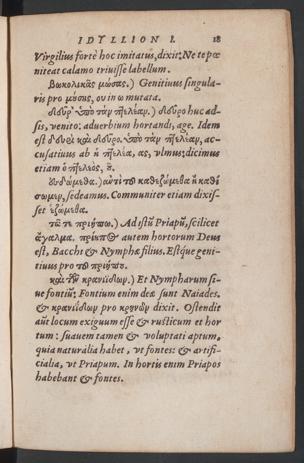 IDYLLION I. 18
Virgilius fortè hoc imitatus, dixit: Ne te pœ
niteat calamo triuisse labellum.
Βωκολικᾶς μώσας.) Genitiuus singula-
ris pro μύσης, ου in ω mutata.
δεῦρ' ὑπὸ τὰν πτελέαν.) δεῦρο huc ad-
sis, venito: aduerbium hortandi, age. Idem
est δεῦρο. ὑπὸ τὰν πτελέαν, ac-
cusatiuus ab ἡ πτελέα, ας, vlmus: dicimus
etiam ὁ πτελεὸς, οῦ.
ἑσδώμεθα.) ἀντὶ τοῦ καθεζώμεθα ἢ καθί
σωμεν, sedeamus. Communiter etiam dixis-
set ἑζώμεθα.
τῶ τε πριήπω.) Ad istū Priapū, scilicet
ἄγαλμα. autem hortorum Deus
est, Bacchi & Nymphæ filius. Estque geni-
tiuus pro τοῦ πριήπου.
καὶ τᾶν κρανιάδων.) Et Nympharum si-
ue fontiū: Fontium enim deæ sunt Naiades.
& κρανιάδων pro κρηνῶν dixit. Ostendit
aūt locum exiguum esse & rusticum et hor
tum: suauem tamen & voluptati aptum,
quia naturalia habet, vt fontes: & artifi-
cialia, vt Priapum. In hortis enim Priapos
habebant & fontes.